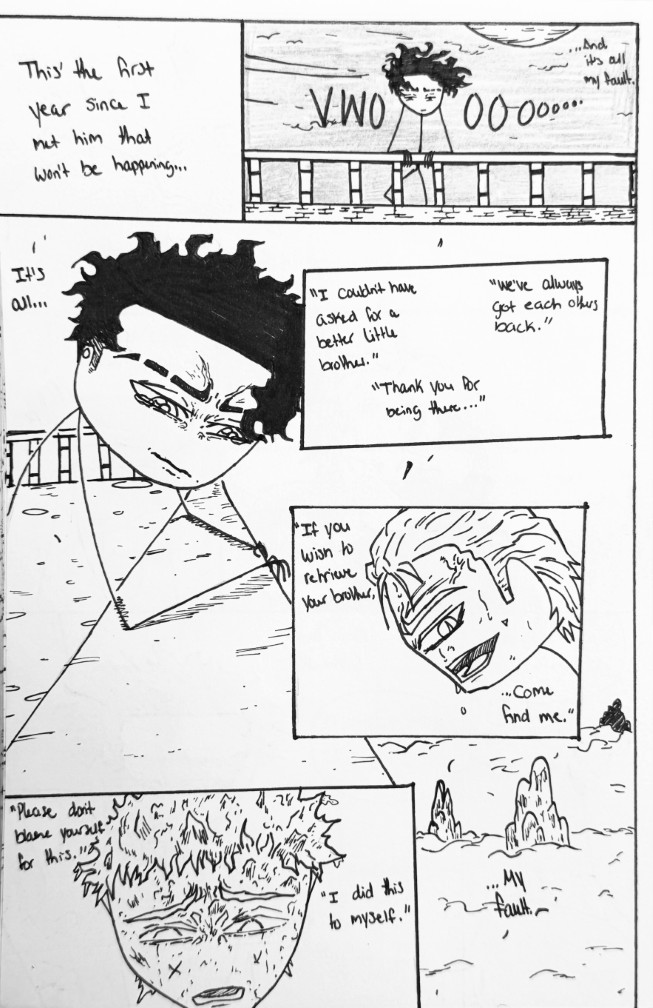 This' the first
year since I
met him that
won't be happening...
...And
it's all
my fault.
VWOOOOoooo...
It's
all...
"I couldn't have
asked for a
better little
brother."
"We've always
got each others
back."
"Thank you for
being there..."
"If you
wish to
retrieve
your brother,
...Come
find me."
"Please don't
blame yourself
for this."
"I did this
to myself."
...My
fault...